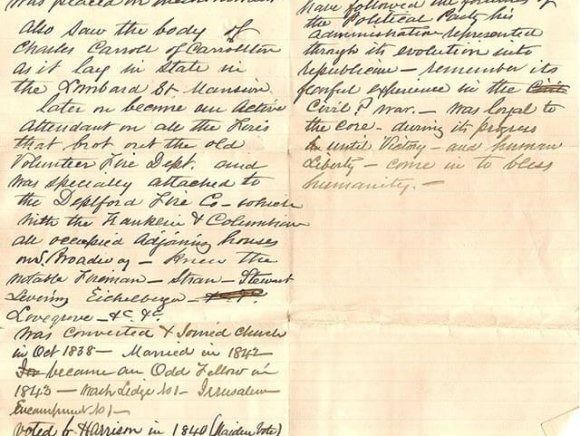 was placed on
also saw the body of
Charles Carroll of Carrollton
as it lay in State in
the Lombard St Mansion
later on became an active
attendant on all the Fires
that brot out the old
Volunteer Fire Dept. and
was specially attached to
the Deptford Fire Co - which
with the Franklin & Columbian
all occupied adjoining houses
on S. Broadway - Knew the
notable Fireman - Straw - Stewart
Levering Eichelberger -
Lovegrove - &c &c.
Was Converted & Joined Church
in Oct 1838 - Married in 1842 -
became an Odd Fellow in
1843 - Wash Lodge No 1 - Jerusalem
Encampment No 1 -
Voted for Harrison in 1840 (Maiden Vote)
have followed the fortunes of
the Political Party his
administration represented
through its evolution into
republican - remember its
fearful experience in the Civil
Civil? War. - Was loyal to
the core - during its progress
until Victory - and human
Liberty - come in to bless
humanity. -